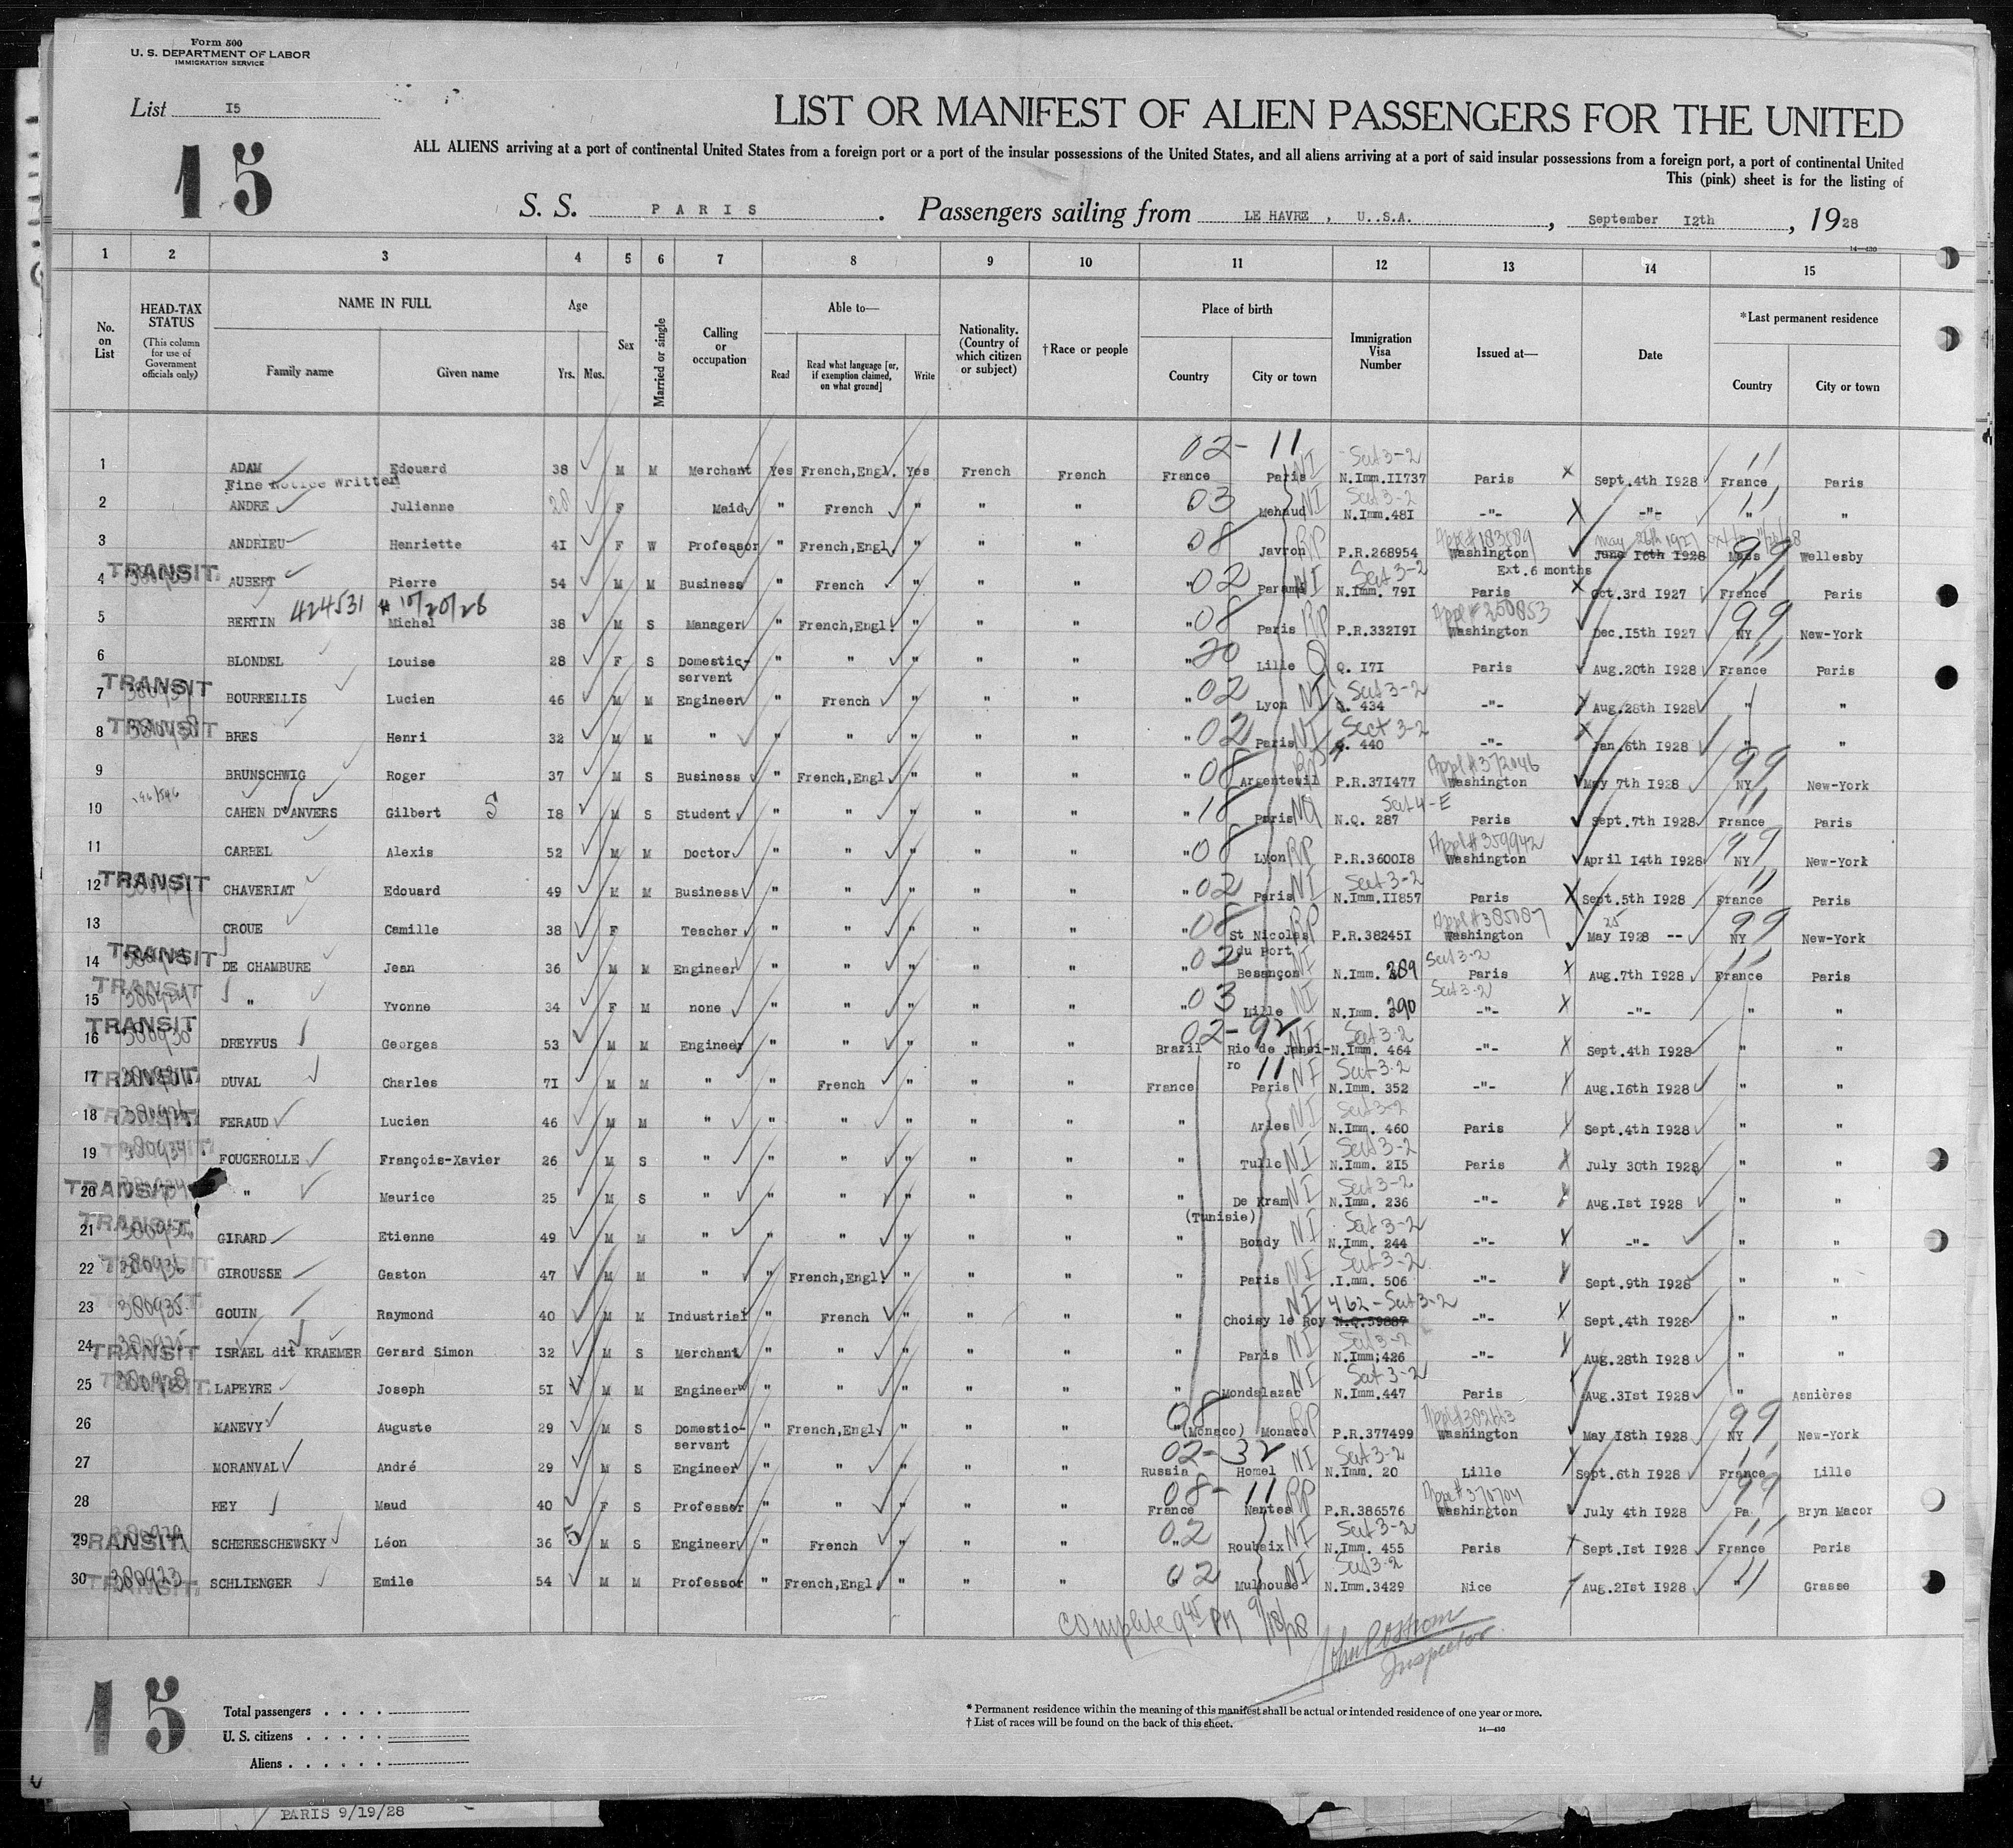 Form 500
U. S. DEPARTMENT OF LABOR
IMMIGRATION SERVICE
List I5
LIST OR MANIFEST OF ALIEN PASSENGERS FOR THE UNITED
15
ALL ALIENS arriving at a port of continental United States from a foreign port or a port of the insular possessions of the United States, and all aliens arriving at a port of said insular possessions from a foreign port, a port of continental United
This (pink) sheet is for the listing of
S. S. PARIS. Passengers sailing from LE HAVRE , U..S.A. , September I2th , 1928
14—430
1 2 3 4 5 6 7 8 9 10 11 12 13 14 15
No. on List
HEAD-TAX STATUS (This column for use of Government officials only)
NAME IN FULL Family name Given name
Age Yrs. Mos.
Sex
Married or single
Calling or occupation
Able to— Read Read what language [or, if exemption claimed, on what ground] Write
Nationality. (Country of which citizen or subject)
†Race or people
Place of birth Country City or town
Immigration Visa Number
Issued at—
Date
*Last permanent residence Country City or town
02- 11 Sect 3-2 11
1 ADAM Edouard 38 M M Merchant Yes French,Engl. Yes French French France Paris NI N.Imm.II737 Paris Sept.4th I928 France Paris
Fine Notice Written
2 ANDRE Julienne 28 F Maid " French " " " " 03 Mehaud NI Sect 3-2 N.Imm.48I -"- -"- " "
3 ANDRIEU Henriette 4I F W Professor " French,Engl. " " " " 08 Javron RP P.R.268954 Washington June I6th I928 Mass 99 Wellesby
Ext.6 months
TRANSIT
4 AUBERT Pierre 54 M M Business " French " " " " 02 NI Sect 3-2 N.Imm. 79I Paris Oct.3rd I927 France Paris
424531 # 10/20/28
5 BERTIN Michel 38 M S Manager " French,Engl. " " " " 08 Paris RP P.R.332I9I Appl# 250853 Washington Dec.I5th I927 NY 99 New-York
6 BLONDEL Louise 28 F S Domestic-servant " " " " " " 20 Lille Q Q. I7I Paris Aug.20th I928 France Paris
TRANSIT
7 BOURRELLIS Lucien 46 M M Engineer " French " " " " 02 Lyon NI Sect 3-2 Q. 434 -"- Aug.28th I928 " "
TRANSIT
8 BRES Henri 32 M M " " " " " " " 02 Paris NI Sect 3-2 Q. 440 -"- Jan.6th I928 " "
9 BRUNSCHWIG Roger 37 M S Business " French,Engl. " " " " 08 Argenteuil RP P.R.37I477 Appl# 372046 Washington May 7th I928 NY 99 New-York
10 CAHEN D'ANVERS Gilbert S I8 M S Student " " " " " " 18 Paris NQ Sect 4-E N.Q. 287 Paris Sept.7th I928 France Paris
11 CARREL Alexis 52 M M Doctor " " " " " " 08 Lyon RP P.R.3600I8 Appl# 359942 Washington April I4th I928 NY 99 New-York
TRANSIT
12 CHAVERIAT Edouard 49 M M Business " " " " " " 02 Paris NI Sect 3-2 N.Imm.II857 Paris Sept.5th I928 France Paris
13 CROUE Camille 38 F Teacher " " " " " " 08 St Nicoles du Port RP P.R.38245I Appl# 385087 Washington May 25 I928 -- NY 99 New-York
TRANSIT
14 DE CHAMBURE Jean 36 M M Engineer " " " " " " 02 Besançon NI N.Imm. 289 Sect 3-2 Paris Aug.7th I928 France Paris
TRANSIT
15 " Yvonne 34 F M none " " " " " " 03 Lille NI N.Imm. 290 Sect 3-2 -"- -"- " "
TRANSIT 380930
16 DREYFUS Georges 53 M M Engineer " " " " " 02-92 Brazil Rio de Janeiro NI Sect 3-2 N.Imm. 464 -"- Sept.4th I928 " "
TRANSIT
17 DUVAL Charles 7I M M " " French " " " France 11 Paris NI Sect 3-2 N.Imm. 352 -"- Aug.I6th I928 " "
TRANSIT
18 FERAUD Lucien 46 M M " " " " " " " Arles NI Sect 3-2 N.Imm. 460 Paris Sept.4th I928 " "
TRANSIT
19 FOUGEROLLE François-Xavier 26 M S " " " " " " " Tulle NI Sect 3-2 N.Imm. 2I5 Paris July 30th I928 " "
TRANSIT
20 " Maurice 25 M S " " " " " " " De Kram (Tunisie) NI Sect 3-2 N.Imm. 236 -"- Aug.Ist I928 " "
TRANSIT
21 GIRARD Etienne 49 M M " " " " " " " Bondy NI Sect 3-2 N.Imm. 244 -"- -"- " "
TRANSIT 380936
22 GIROUSSE Gaston 47 M M " " French,Engl. " " " " Paris NI Sect 3-2 .I.mm. 506 -"- Sept.9th I928 " "
380935
23 GOUIN Raymond 40 M M Industrial " French " " " " Choisy le Roy NI 462-Sect 3-2 N.Q.59887 -"- Sept.4th I928 " "
TRANSIT
24 ISRAEL dit KRAEMER Gerard Simon 32 M S Merchant " " " " " " Paris NI Sect 3-2 N.Imm;426 -"- Aug.28th I928 " "
TRANSIT
25 LAPEYRE Joseph 5I M M Engineer " " " " " " Mondalazac NI Sect 3-2 N.Imm.447 Paris Aug.3Ist I928 " Asnières
26 MANEVY Auguste 29 M S Domestic-servant " French,Engl. " " " " 08 (Monaco) Monaco RP P.R.377499 Washington May I8th I928 NY 99 New-York
27 MORANVAL André 29 M S Engineer " " " " " 02-32 Russia Homel NI Sect 3-2 N.Imm. 20 Lille Sept.6th I928 France Lille
28 REY Maud 40 F S Professor " " " " " 08-11 France Nantes RP P.R.386576 Appl# 370704 Washington July 4th I928 Pa 99 Bryn Macor
TRANSIT
29 SCHERESCHEWSKY Léon 36 5 M S Engineer " French " " " " 02 Roubaix NI Sect 3-2 N.Imm. 455 Paris Sept.Ist I928 France Paris
TRANSIT 380923
30 SCHLIENGER Emile 54 M M Professor " French,Engl. " " " 02 Mulhouse NI Sect 3-2 N.Imm.3429 Nice Aug.2Ist I928 " 11 Grasse
Complete 9 45 PM 9/18/28
Inspector
15
Total passengers . . . .
U. S. citizens . . . . .
Aliens . . . . . .
* Permanent residence within the meaning of this manifest shall be actual or intended residence of one year or more.
† List of races will be found on the back of this sheet.
14—430
PARIS 9/19/28